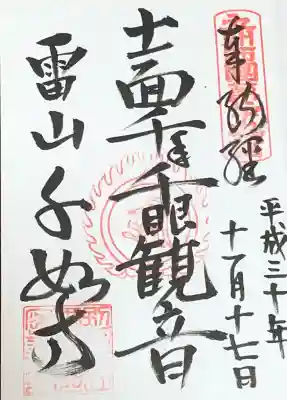 奉納經
平成三十年
十一月十七日
十一面千手千眼観音
雷山千如寺